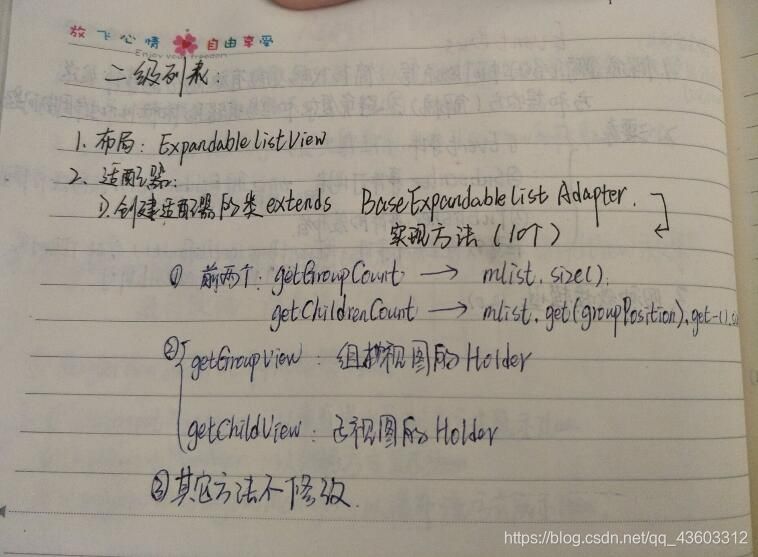 放飞心情 自由享受
Enjoy your freedom
二级列表:
1. 布局: ExpandableListView
2. 适配器:
1). 创建适配器的类 extends BaseExpandableListAdapter.
实现方法 (10个)
① 前两个: getGroupCount → mlist.size().
getChildrenCount → mlist.get(groupPosition).get-().si
② getGroupView : 组视图的Holder
getChildView : 子视图的Holder
③ 其它方法不修改.
https://blog.csdn.net/qq_43603312